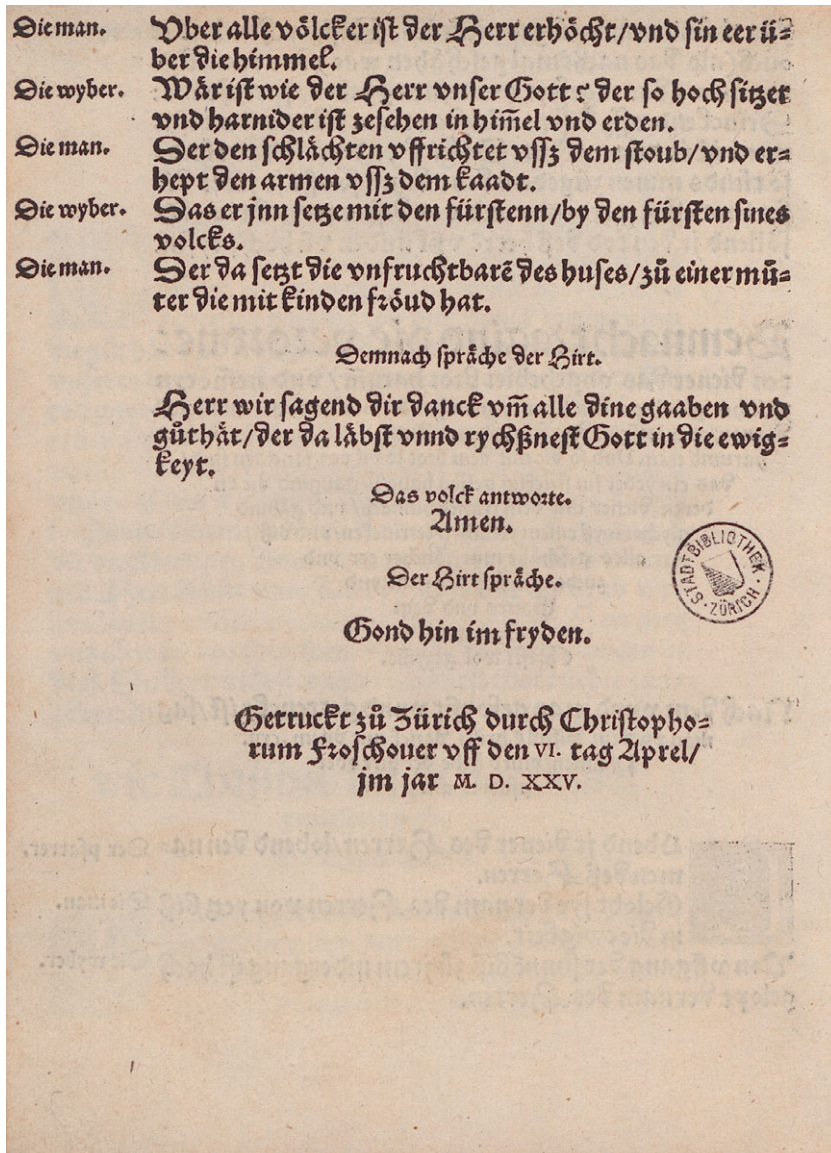 Die man. Vber alle völcker ist der Herr erhöcht/vnd sin eer ü-
ber die himmel.
Die wyber. Wär ist wie der Herr vnser Gott? der so hoch sitzet
vnd harnider ist zesehen in him̄el vnd erden.
Die man. Der den schlächten vffrichtet vssz dem stoub/vnd er-
hept den armen vssz dem kaadt.
Die wyber. Das er jnn setze mit den fürstenn/by den fürsten sines
volcks.
Die man. Der da setzt die vnfruchtbarē des huses/zů einer mů-
ter die mit kinden fröud hat.
Demnach spräche der Hirt.
Herr wir sagend dir danck vm̄ alle dine gaaben vnd
gůthät/der da läbst vnnd rychßnest Gott in die ewig-
keyt.
Das volck antworte.
Amen.
Der Hirt spräche.
Gond hin im fryden.
STADTBIBLIOTHEK · ZÜRICH ·
Getruckt zů Zürich durch Christopho-
rum Froschouer vff den VI. tag Aprel/
jm jar M. D. XXV.